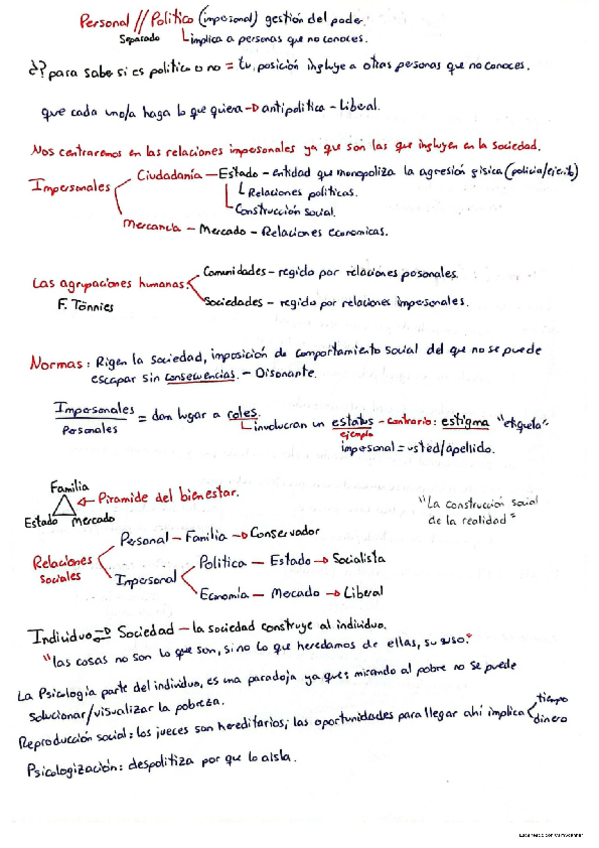 Personal // Político (impersonal) gestión del poder.
Separado
implica a personas que no conoces.
¿? para saber si es político o no = tu posición incluye a otras personas que no conoces.
que cada uno/a haga lo que quiera → antipolítica - Liberal.
Nos centraremos en las relaciones impersonales ya que son las que influyen en la sociedad.
Impersonales
Ciudadanía — Estado - entidad que monopoliza la agresión física (policía/ejército)
Relaciones políticas.
Construcción social.
Mercancía - Mercado - Relaciones economicas.
Las agrupaciones humanas:
F. Tönnies
Comunidades - regido por relaciones personales.
Sociedades - regido por relaciones impersonales.
Normas: Rigen la sociedad, imposición de comportamiento social del que no se puede
escapar sin consecuencias. - Disonante.
Impersonales
Personales
= dan lugar a roles.
involucran un estatus - contrario: estigma "etiqueta".
ejemplo
impersonal = usted/apellido.
Familia
Estado Mercado
← Piramide del bienestar.
"La construcción social
de la realidad"
Relaciones
sociales
Personal - Familia → Conservador
Impersonal
Política — Estado → Socialista
Economía — Mercado → Liberal
Individuo ⇄ Sociedad - la sociedad construye al individuo.
"las cosas no son lo que son, sino lo que heredamos de ellas, su uso."
La Psicología parte del individuo, es una paradoja ya que: mirando al pobre no se puede
solucionar/visualizar la pobreza.
Reproducción social: los jueces son hereditarios; las oportunidades para llegar ahí implica
tiempo
dinero
Psicologización: despolitiza por que lo aisla.